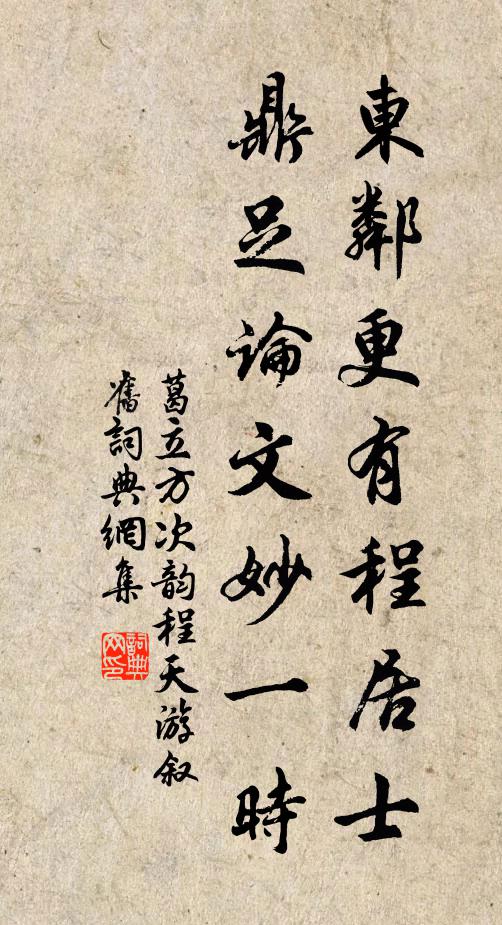 東鄰更有程居士
鼎足論文妙一時
葛立方次韵程天游叙
舊詞典網集
詞典网印